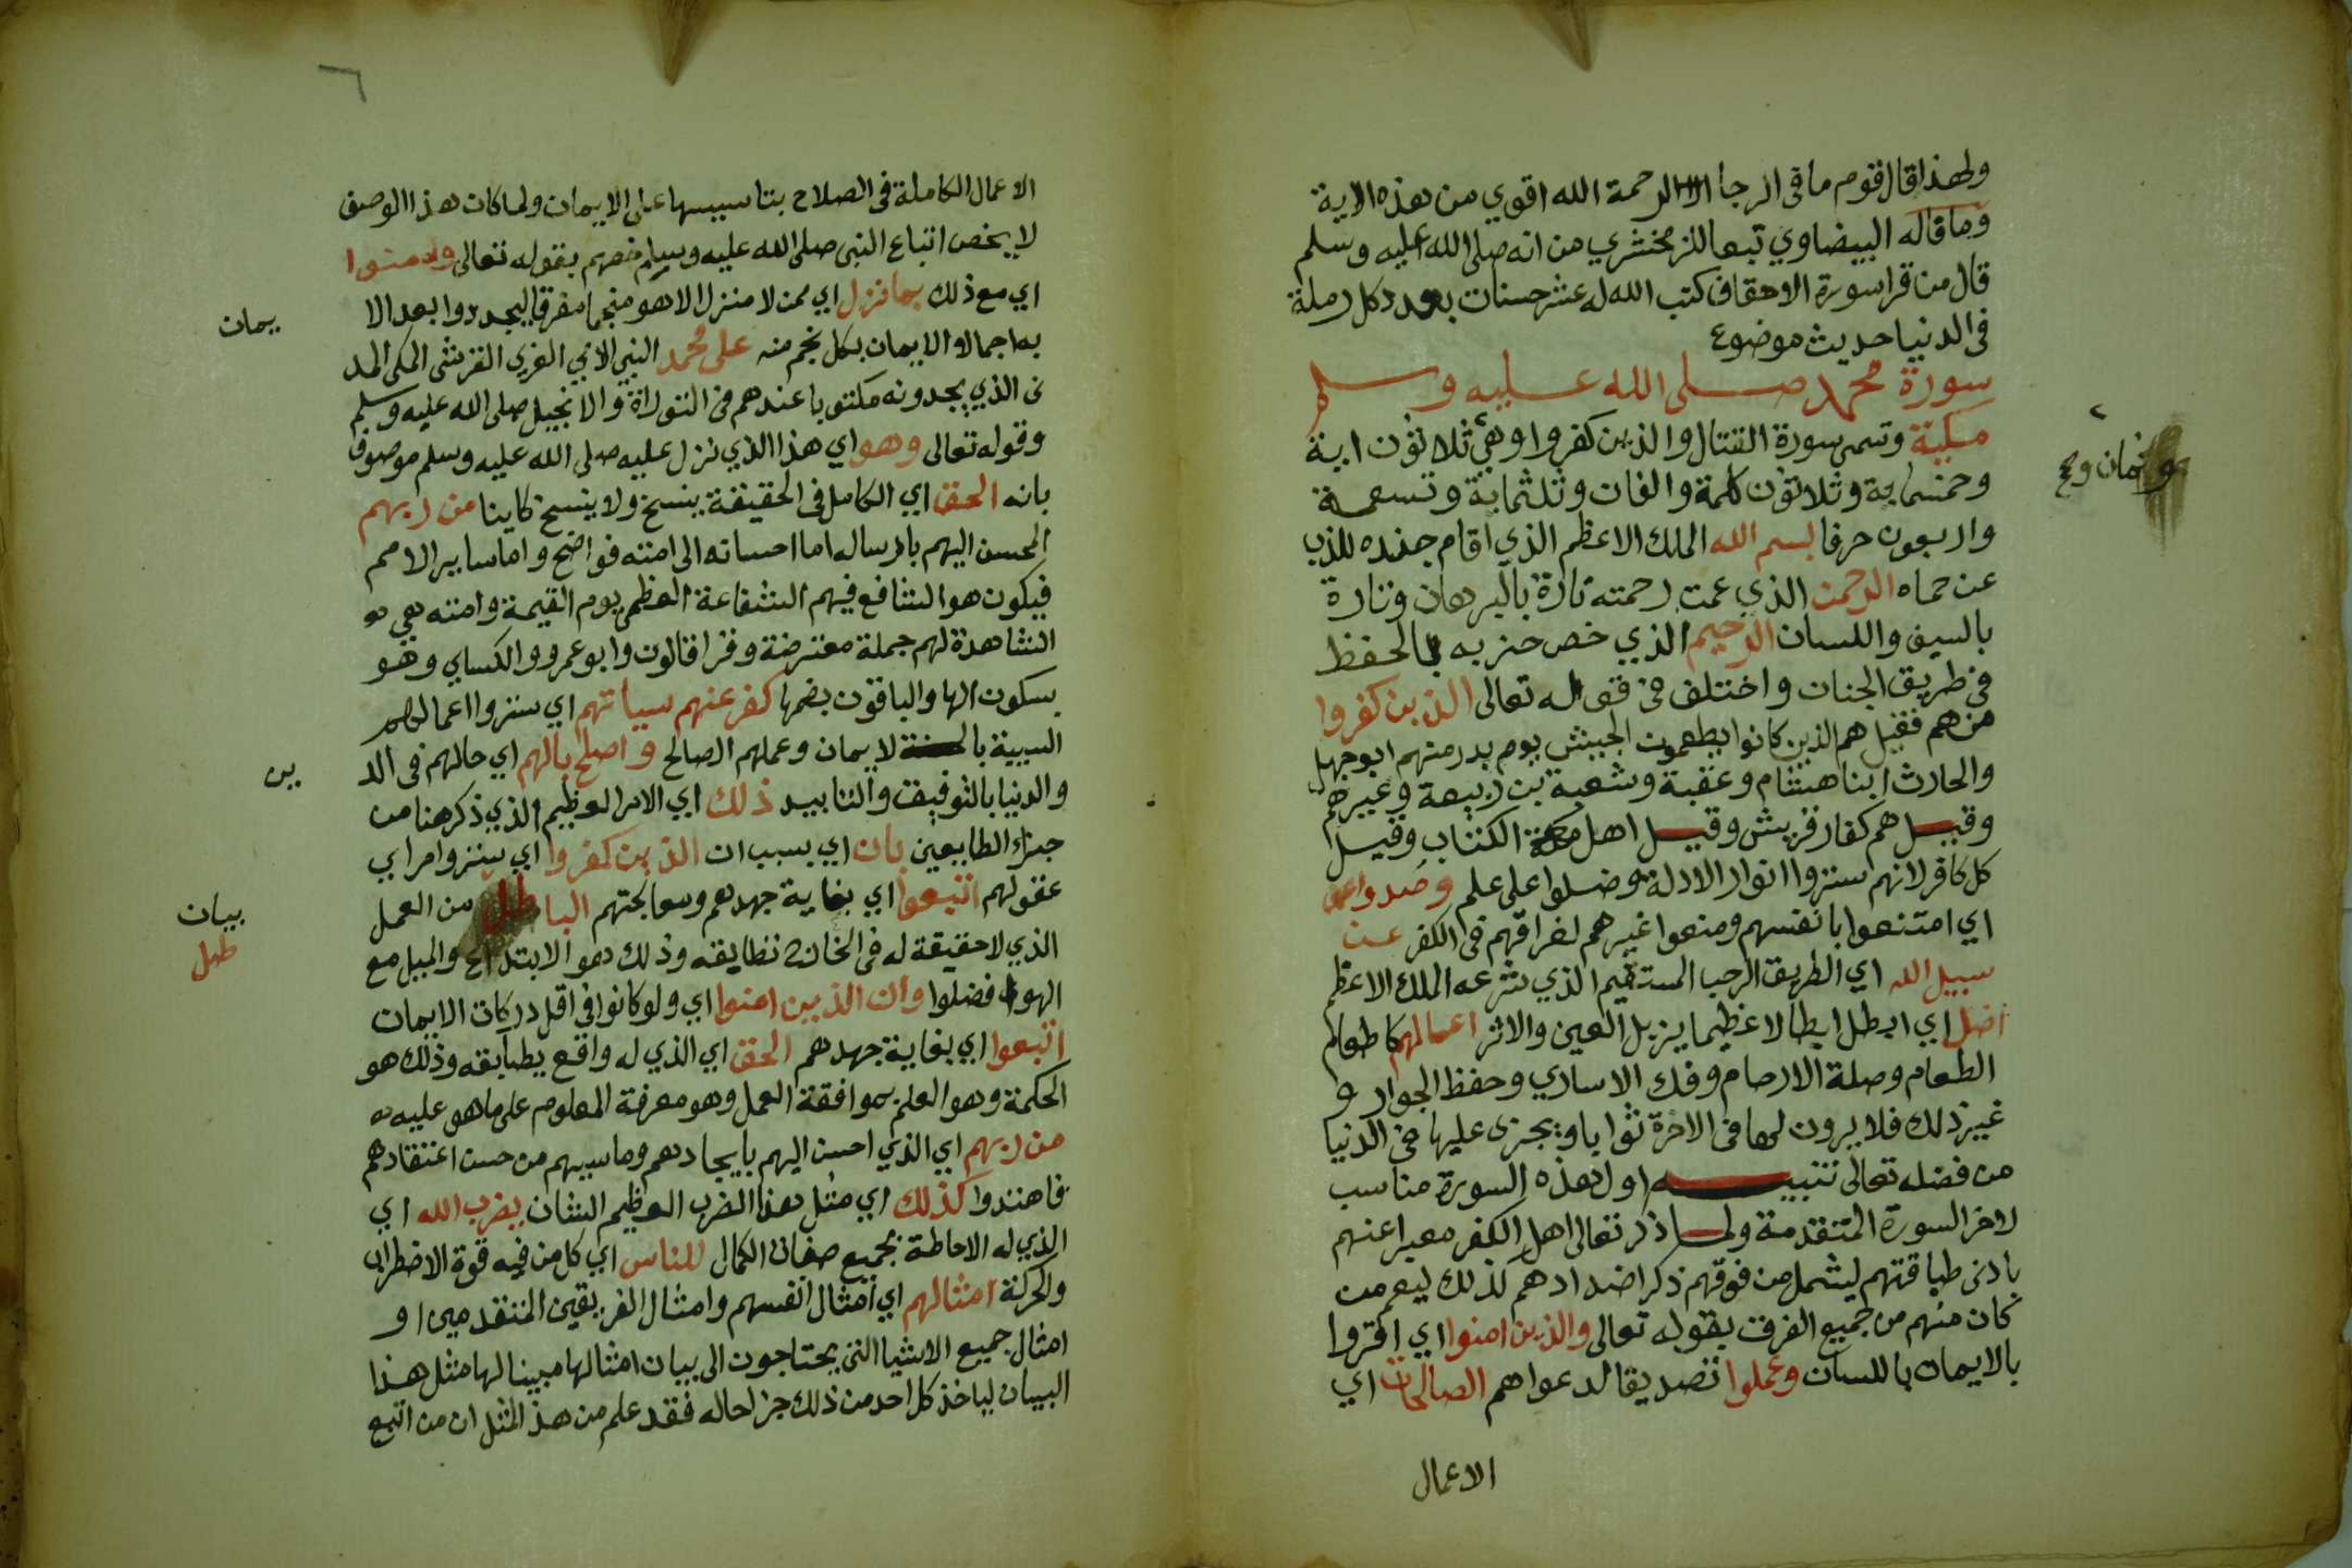 ولهذا قال قوم ما في الرجا لرحمة الله اقوي من هذه الاية
وما قاله البيضاوي تبعا للزمخشري من انه صلى الله عليه وسلم
قال من قرا سورة الاحقاف كتب الله له عشر حسنات بعدد كل رملة
في الدنيا حديث موضوع
سورة محمد صلى الله عليه وسلم
مكية وتسمى سورة القتال والذين كفروا وهي ثلاثون اية
وثمان وخ
وخمسماية وثلاثون كلمة والفان وثلثماية وتسعة
واربعون حرفا بسم الله الملك الاعظم الذي اقام جنده للذب
عن حماه الرحمن الذي عمت رحمته تارة بالبرهان وتارة
بالسيف واللسان الرحيم الذي خص حزبه بالحفظ
في طريق الجنان واختلف في قوله تعالى الذين كفروا
من هم فقيل هم الذين كانوا يطعمون الجيش يوم بدر منهم ابوجهل
والحارث ابنا هشام وعقبة وشعبة بن ربيعة وغيرهم
وقيل هم كفار قريش وقيل اهل الكتاب وقيل
كل كافر لانهم ستروا انوار الادلة وضلوا على علم وصدوا
اي امتنعوا بانفسهم ومنعوا غيرهم لغراقهم في الكفر عن
سبيل الله اي الطريق الرحب المستقيم الذي شرعه الملك الاعظم
اضل اي ابطل ابطالا عظيما يزيل العين والاثر اعمالهم كاطعام
الطعام وصلة الارحام وفك الاساري وحفظ الجوار و
غير ذلك فلا يرون لها في الاخرة ثوابا ويجزى عليها في الدنيا
من فضله تعالى تنبيه اول هذه السورة مناسب
لاخر السورة المتقدمة ولما ذكر تعالى اهل الكفر معبرا عنهم
بادنى طباقتهم ليشمل من فوقهم ذكر اضدادهم كذلك ليعم من
كان منهم من جميع الفرق بقوله تعالى والذين امنوا اي اقروا
بالايمان باللسان وعملوا تصديقا لدعواهم الصالحات اي
الاعمال
٦
الاعمال الكاملة في الصلاح بتاسيسها على الايمان ولما كان هذا الوصف
لا يخص اتباع النبي صلى الله عليه وسلم خصهم بقوله تعالى وامنوا
اي مع ذلك بما نزل اي ممن لا منزل الا هو منجما مفرقا ليجددوا بعد الا
يمان
به اجمالا الايمان بكل نجم منه على محمد النبي الامي العربي القرشي المكي المد
ني الذي يجدونه مكتوبا عندهم في التوراة والانجيل صلى الله عليه وسلم
وقوله تعالى وهو اي هذا الذي نزل عليه صلى الله عليه وسلم موصوف
بانه الحق اي الكامل في الحقيقة ينسخ ولا ينسخ كاينا من ربهم
المحسن اليهم بارساله اما احسانه الى امته فواضح واما ساير الامم
فيكون هو الشافع فيهم الشفاعة العظمى يوم القيمة وامته هي
الشاهدة لهم جملة معترضة وقرا قالون وابو عمرو والكساي وهو
بسكون الها والباقون بضمها كفر عنهم سياتهم اي ستروا اعمالهم
السيية بالايمان وعملهم الصالح واصلح بالهم اي حالهم في الد
ين
والدنيا بالتوفيق والتاييد ذلك اي الامر العظيم الذي ذكر هنا من
جزاء الطايعين بان اي بسبب ان الذين كفروا اي ستروا مراي
عقولهم اتبعوا اي بغاية جهدهم ومعالجتهم الباطل من العمل
بيان
طل
الذي لا حقيقة له في الخارج تطابقه وذلك هو الابتداع والميل مع
الهوا فضلوا وان الذين امنوا اي ولو كانوا في اقل دركات الايمان
اتبعوا اي بغاية جهدهم الحق اي الذي له واقع يطابقه وذلك هو
الحكمة وهو العلم بموافقة العمل وهو معرفة المعلوم على ما هو عليه
من ربهم اي الذي احسن اليهم بايجادهم وما سببهم من حسن اعتقادهم
فاهتدوا كذلك اي مثل هذا الضرب العظيم الشان يضرب الله اي
الذي له الاحاطة بجميع صفات الكمال للناس اي كل من فيه قوة الاضطراب
والحركة امثالهم اي امثال انفسهم وامثال الفريقين المتقدمين او
امثال جميع الاشيا التي يحتاجون الى بيان امثالها مبينا لها مثل هذا
البيان لياخذ كل احد من ذلك جزا لحاله فقد علم من هذا المثل ان من اتبع